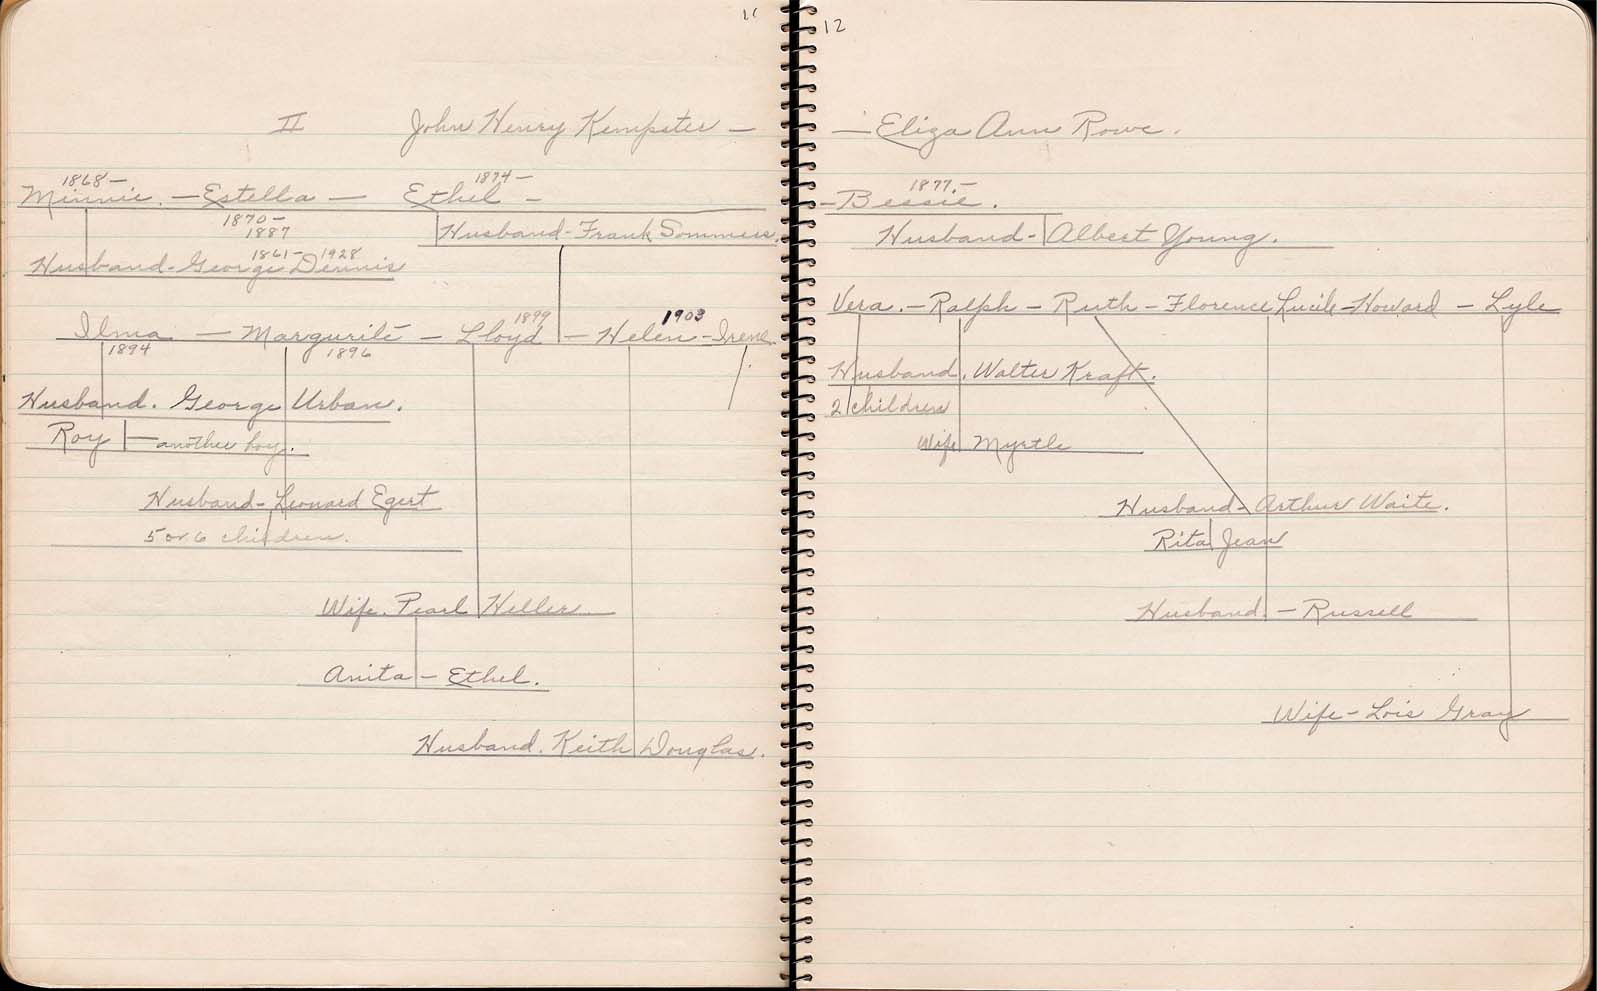 11
II John Henry Kempster —
1868 — 1874 —
Minnie. — Estella — Ethel —
1870 —
1887
Husband - Frank Sommers.
1861 - 1928
Husband - George Dennis
1899 1903
Ilma — Margurite — Lloyd — Helen - Irene
1894 1896
Husband. George Urban.
Roy — another boy.
Husband - Leonard Egert
5 or 6 children.
Wife. Pearl Heller
Anita - Ethel.
Husband. Keith Douglas.
12
— Eliza Ann Rowe.
1877. —
- Bessie.
Husband - Albert Young.
Vera. — Ralph — Ruth — Florence Lucile - Howard — Lyle
Husband. Walter Kraft.
2 children
Wife Myrtle
Husband - Arthur Waite.
Rita Jean
Husband. — Russell
Wife - Lois Gray